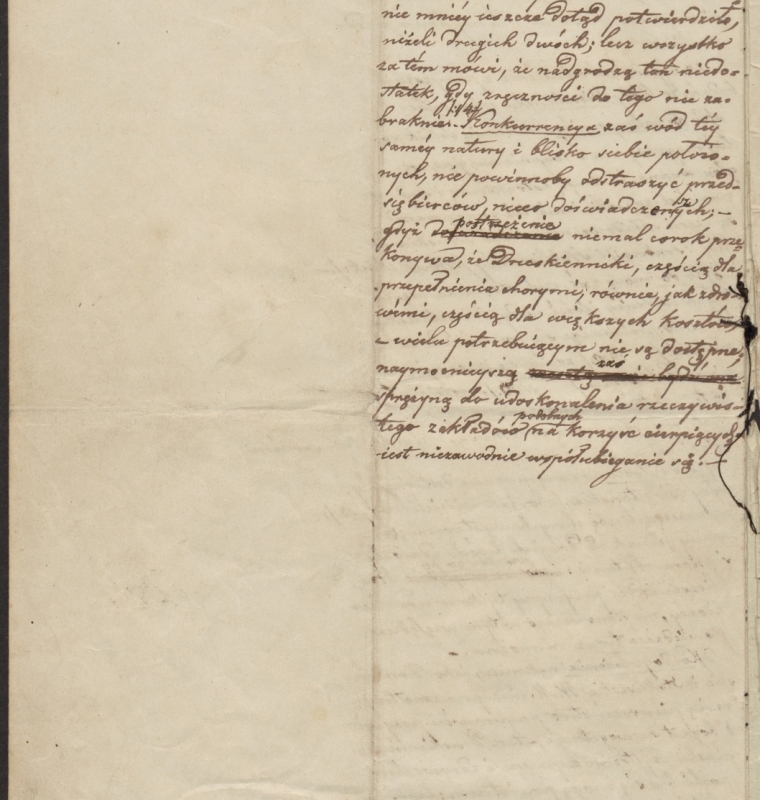 nie mniéy ieszcze dotąd potwierdziło,
niżeli drugich dwóch; lecz wszystko
za tém mówi, że nadgrodzą ten niedo-
statek, gdy zręczności do tego nie za-
braknie. Konkurrencya zaś wód téy
saméy natury i blisko siebie położo-
nych, nie powinnoby odstraszyć przed-
siębierców, nieco doświadczonych; –
gdyż postrzeżenie niemal corok prze-
konywa, że Drueskienniki, częścią dla
przepełnienia chorymi, równie, jak zdro-
wémi, częścią dla większych kosztów,
wielu potrzebuiącym nie są dostępne;
naymocnieyszą zaś
sprężyną do udoskonalenia rzeczywis-
tego zakładów podobnych na korzyść cierpiących
iest niezawodnie współubieganie się. –